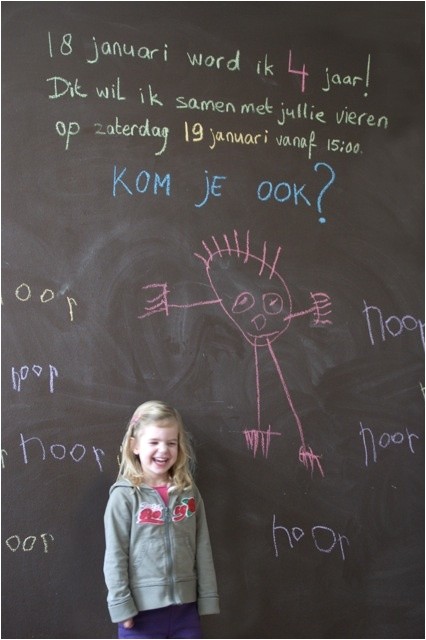 18 januari word ik 4 jaar!
Dit wil ik samen met jullie vieren
op zaterdag 19 januari vanaf 15:00.
KOM JE OOK?
noor
noor
noor
noor
noor
noor
noor